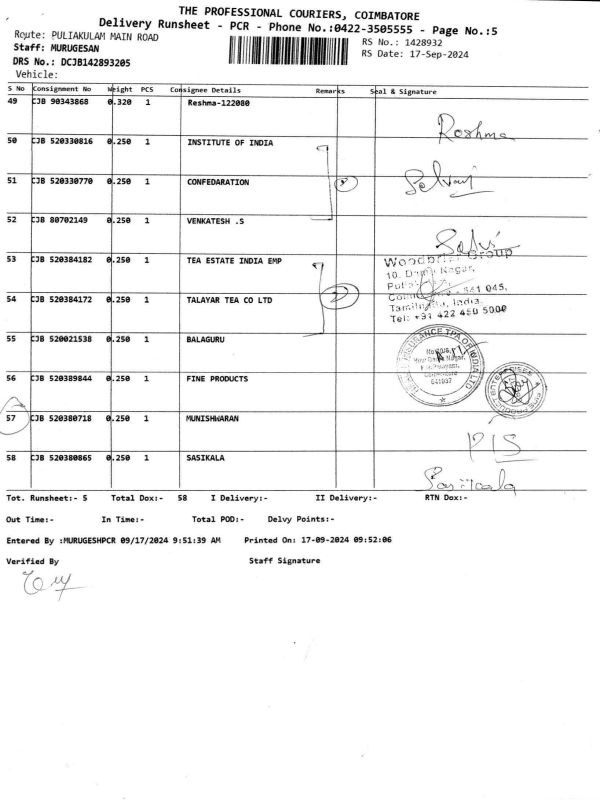 THE PROFESSIONAL COURIERS, COIMBATORE
Delivery Runsheet - PCR - Phone No.:0422-3505555 - Page No.:5
Route: PULIAKULAM MAIN ROAD
RS No.: 1428932
Staff: MURUGESAN
RS Date: 17-Sep-2024
DRS No.: DCJB142893205
Vehicle:
S No Consignment No Weight PCS Consignee Details Remarks Seal & Signature
49 CJB 90343868 0.320 1 Reshma-122080
Reshma
50 CJB 520330816 0.250 1 INSTITUTE OF INDIA
51 CJB 520330770 0.250 1 CONFEDARATION
Selvi
52 CJB 80702149 0.250 1 VENKATESH .S
53 CJB 520384182 0.250 1 TEA ESTATE INDIA EMP
Woodbriar Group
10, Nagar,
54 CJB 520384172 0.250 1 TALAYAR TEA CO LTD
641 045,
Tamilnadu, India.
Tel: +91 422 450 5000
55 CJB 520021538 0.250 1 BALAGURU
INSURANCE TPA OF INDIA LTD
641037
56 CJB 520389844 0.250 1 FINE PRODUCTS
57 CJB 520380718 0.250 1 MUNISHWARAN
P/S
58 CJB 520380865 0.250 1 SASIKALA
Sasikala
Tot. Runsheet:- 5 Total Dox:- 58 I Delivery:- II Delivery:- RTN Dox:-
Out Time:- In Time:- Total POD:- Delvy Points:-
Entered By :MURUGESHPCR 09/17/2024 9:51:39 AM Printed On: 17-09-2024 09:52:06
Verified By Staff Signature